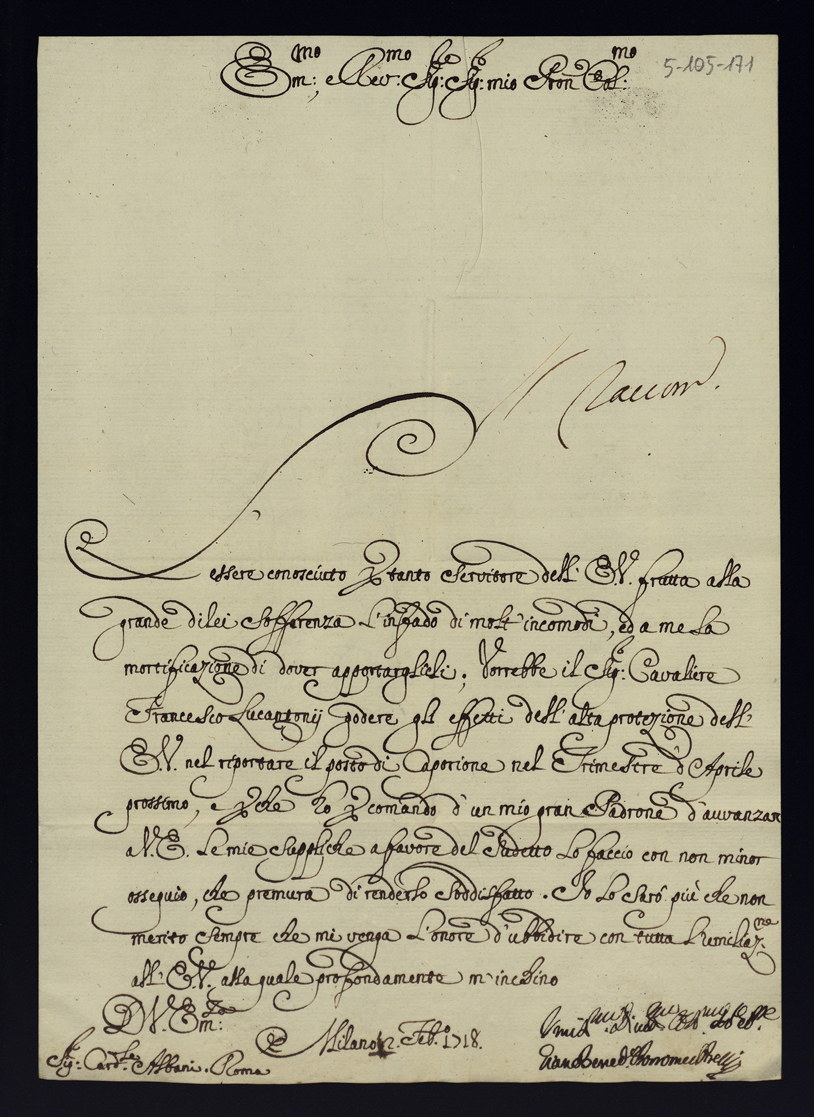 Em:mo, e Rev:mo Sig:re Sig:re mio Pron Col:mo
5-105-171
Raccom.
L'essere conosciuto per tanto Servitore dell'E.V. frutta alla
grande di lei Sofferenza l'infado di molt'incomodi, ed a me la
mortificazione di dover apportarglieli. Vorrebbe il Sig:re Cavaliere
Francesco Lucantonij godere gli effetti dell'alta protezione dell'
E.V. nel riportare il posto di Caporione nel Trimestre d'Aprile
prossimo, e perche hò per comando d'un mio gran Padrone d'avvanzar
a V.E. le mie Suppliche a favore del Sudetto lo faccio con non minor
ossequio, che premura di renderlo Soddisfatto. Io lo sarò più che non
merito sempre che mi venga l'onore d'ubbidire con tutta l'umiliaz:ne
all'E.V. alla quale profondamente m'inchino
D.V.Em:za
Milano 2. Feb.o 1718.
Sig:r Card:le Albani. Roma
Gian Bened.o Borromeo Arese